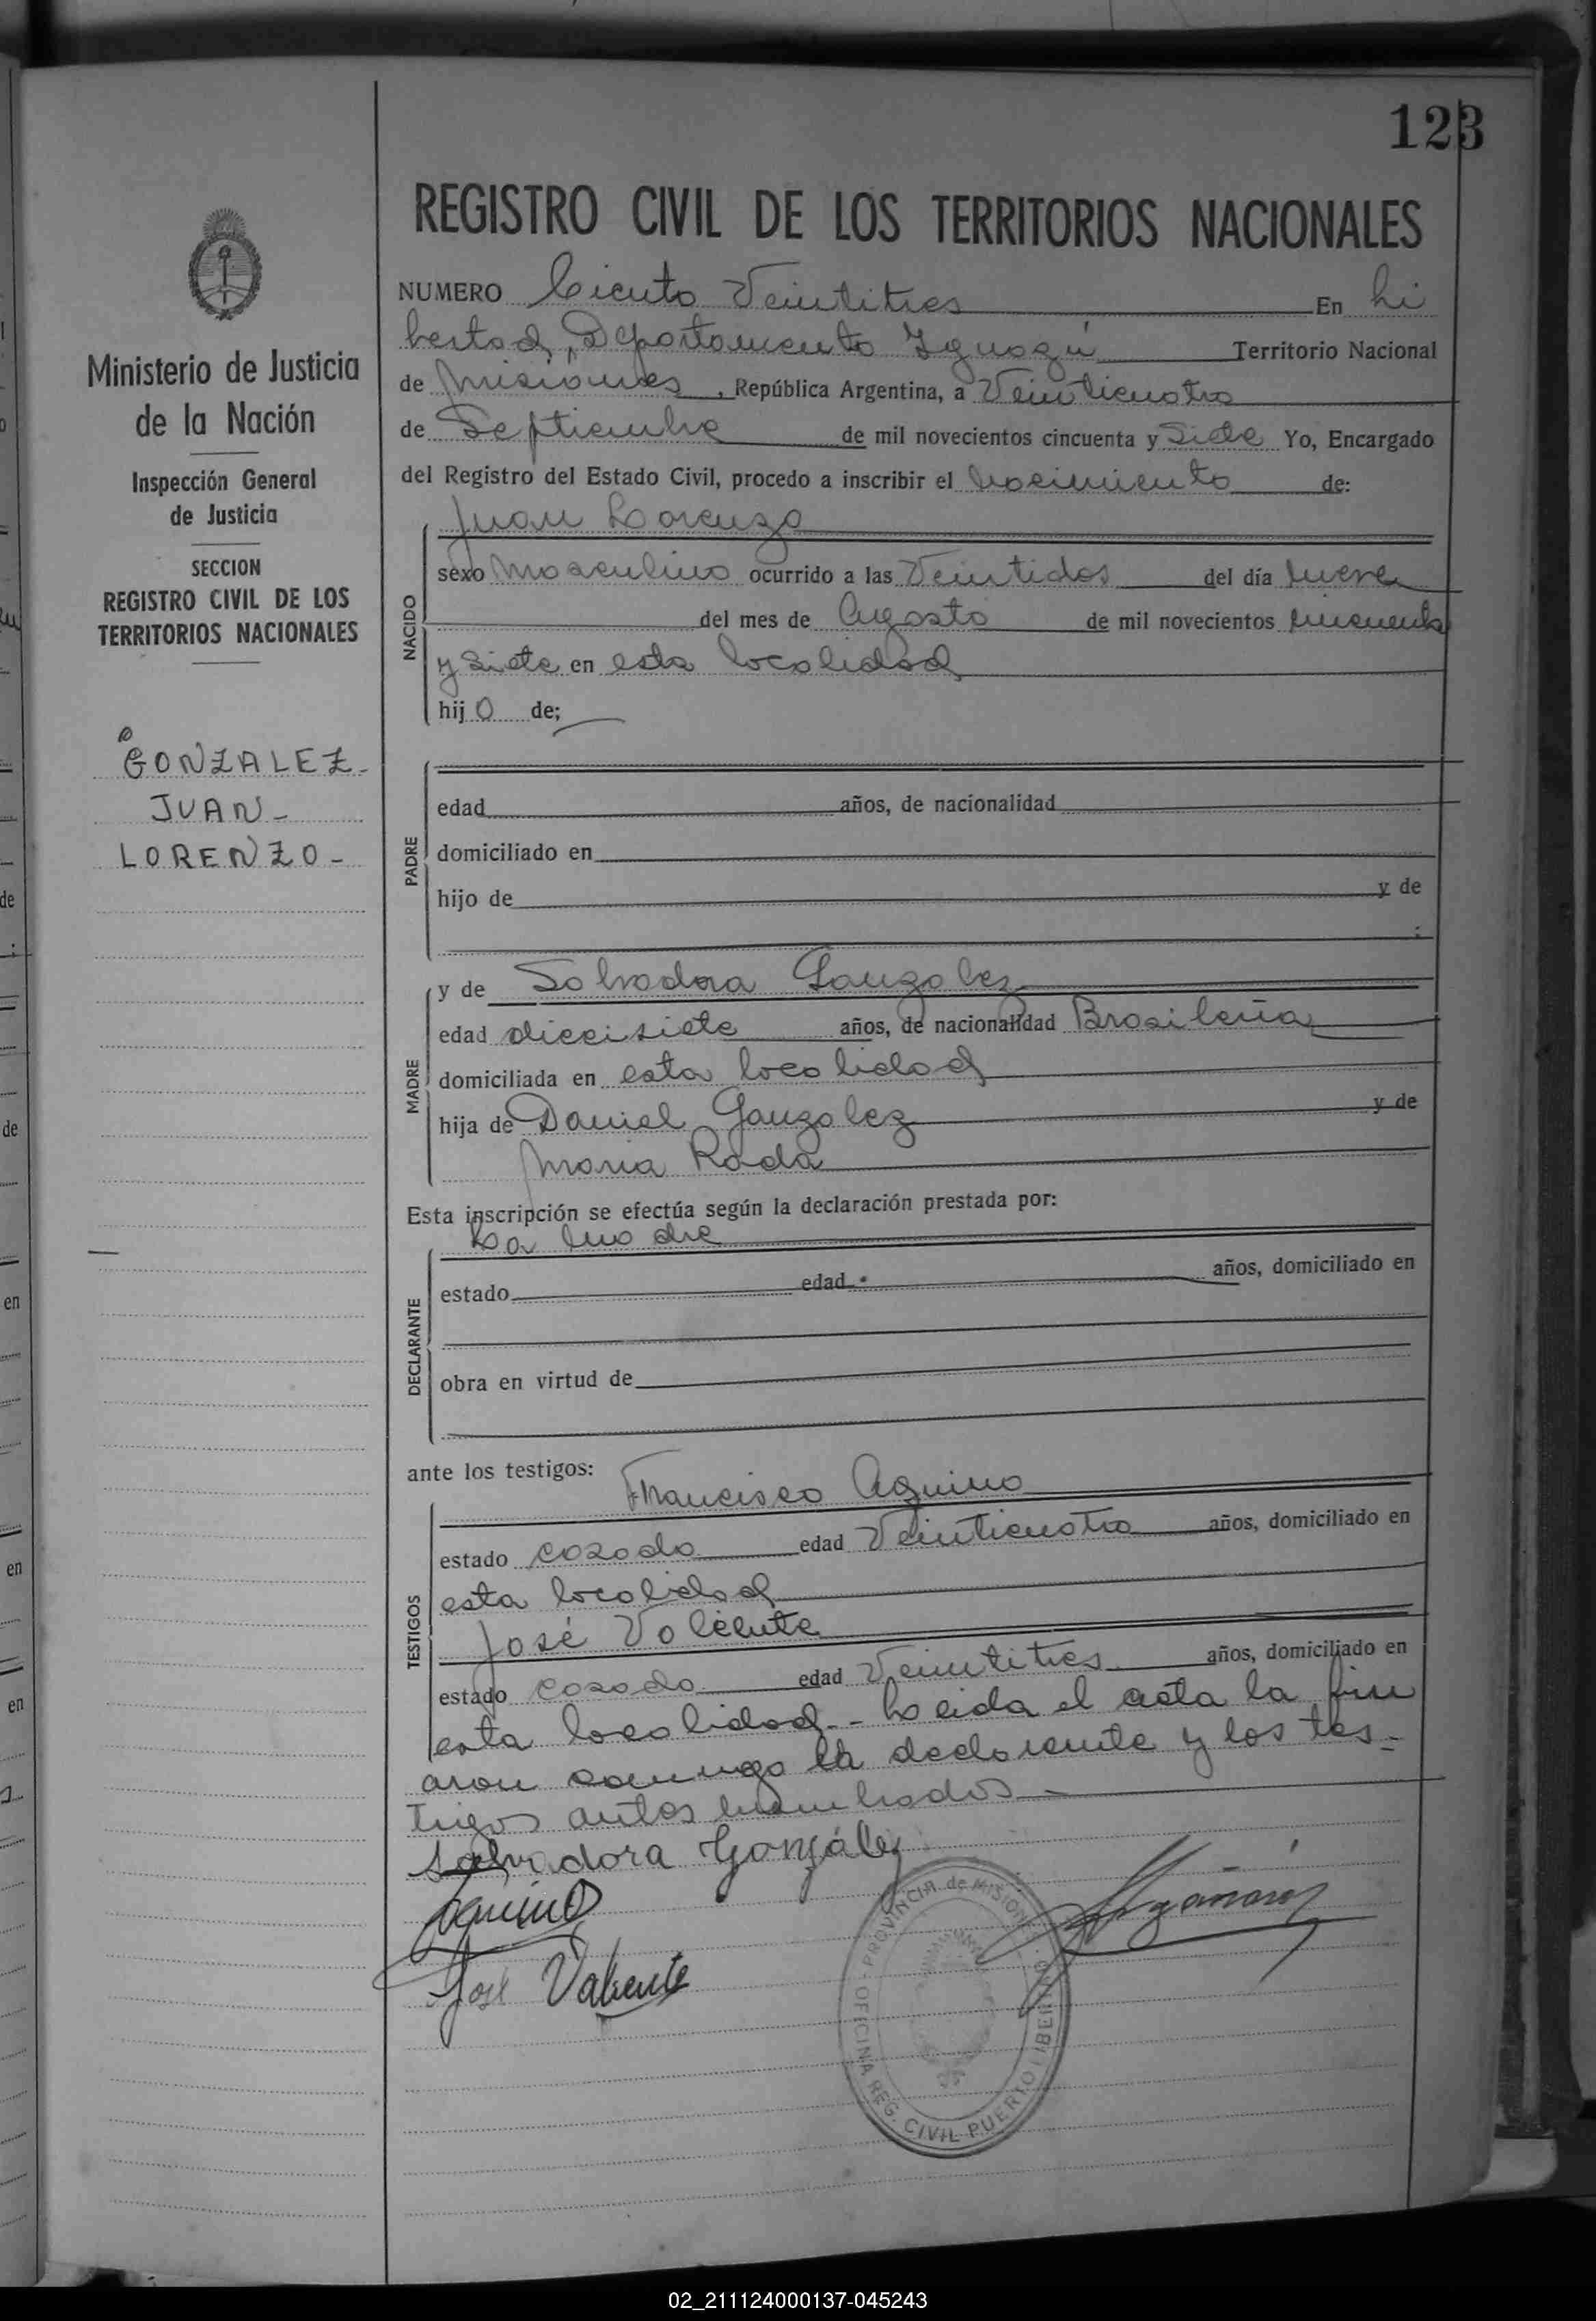 123
REGISTRO CIVIL DE LOS TERRITORIOS NACIONALES
NUMERO Ciento Veintitres En Li
bertad, Departamento Iguazú Territorio Nacional
de Misiones, República Argentina, a Veinticuatro
de Septiembre de mil novecientos cincuenta y Siete Yo, Encargado
del Registro del Estado Civil, procedo a inscribir el nacimiento de:
Juan Lorenzo
NACIDO
sexo masculino ocurrido a las Veintidos del día nueve
del mes de Agosto de mil novecientos cincuenta
y siete en esta localidad
hijo de;
PADRE
edad años, de nacionalidad
domiciliado en
hijo de y de
MADRE
y de Salvadora Gonzalez
edad diecisiete años, de nacionalidad Brasileña
domiciliada en esta localidad
hija de Daniel Gonzalez y de
Maria Roda
Esta inscripción se efectúa según la declaración prestada por:
La madre
DECLARANTE
estado edad años, domiciliado en
obra en virtud de
ante los testigos: Francisco Aquino
TESTIGOS
estado casado edad Veinticuatro años, domiciliado en
esta localidad
José Valiente
estado casado edad Veintitres años, domiciliado en
esta localidad.- Leida el acta la firm
aron conmigo la declarante y los tes-
tigos antes nombrados
Salvadora González
Aquino
José Valiente
OFICINA REG. CIVIL PUERTO LIBERTAD - PROVINCIA de MISIONES
Ministerio de Justicia
de la Nación
Inspección General
de Justicia
SECCION
REGISTRO CIVIL DE LOS
TERRITORIOS NACIONALES
GONZALEZ-
JUAN-
LORENZO-
02_211124000137-045243